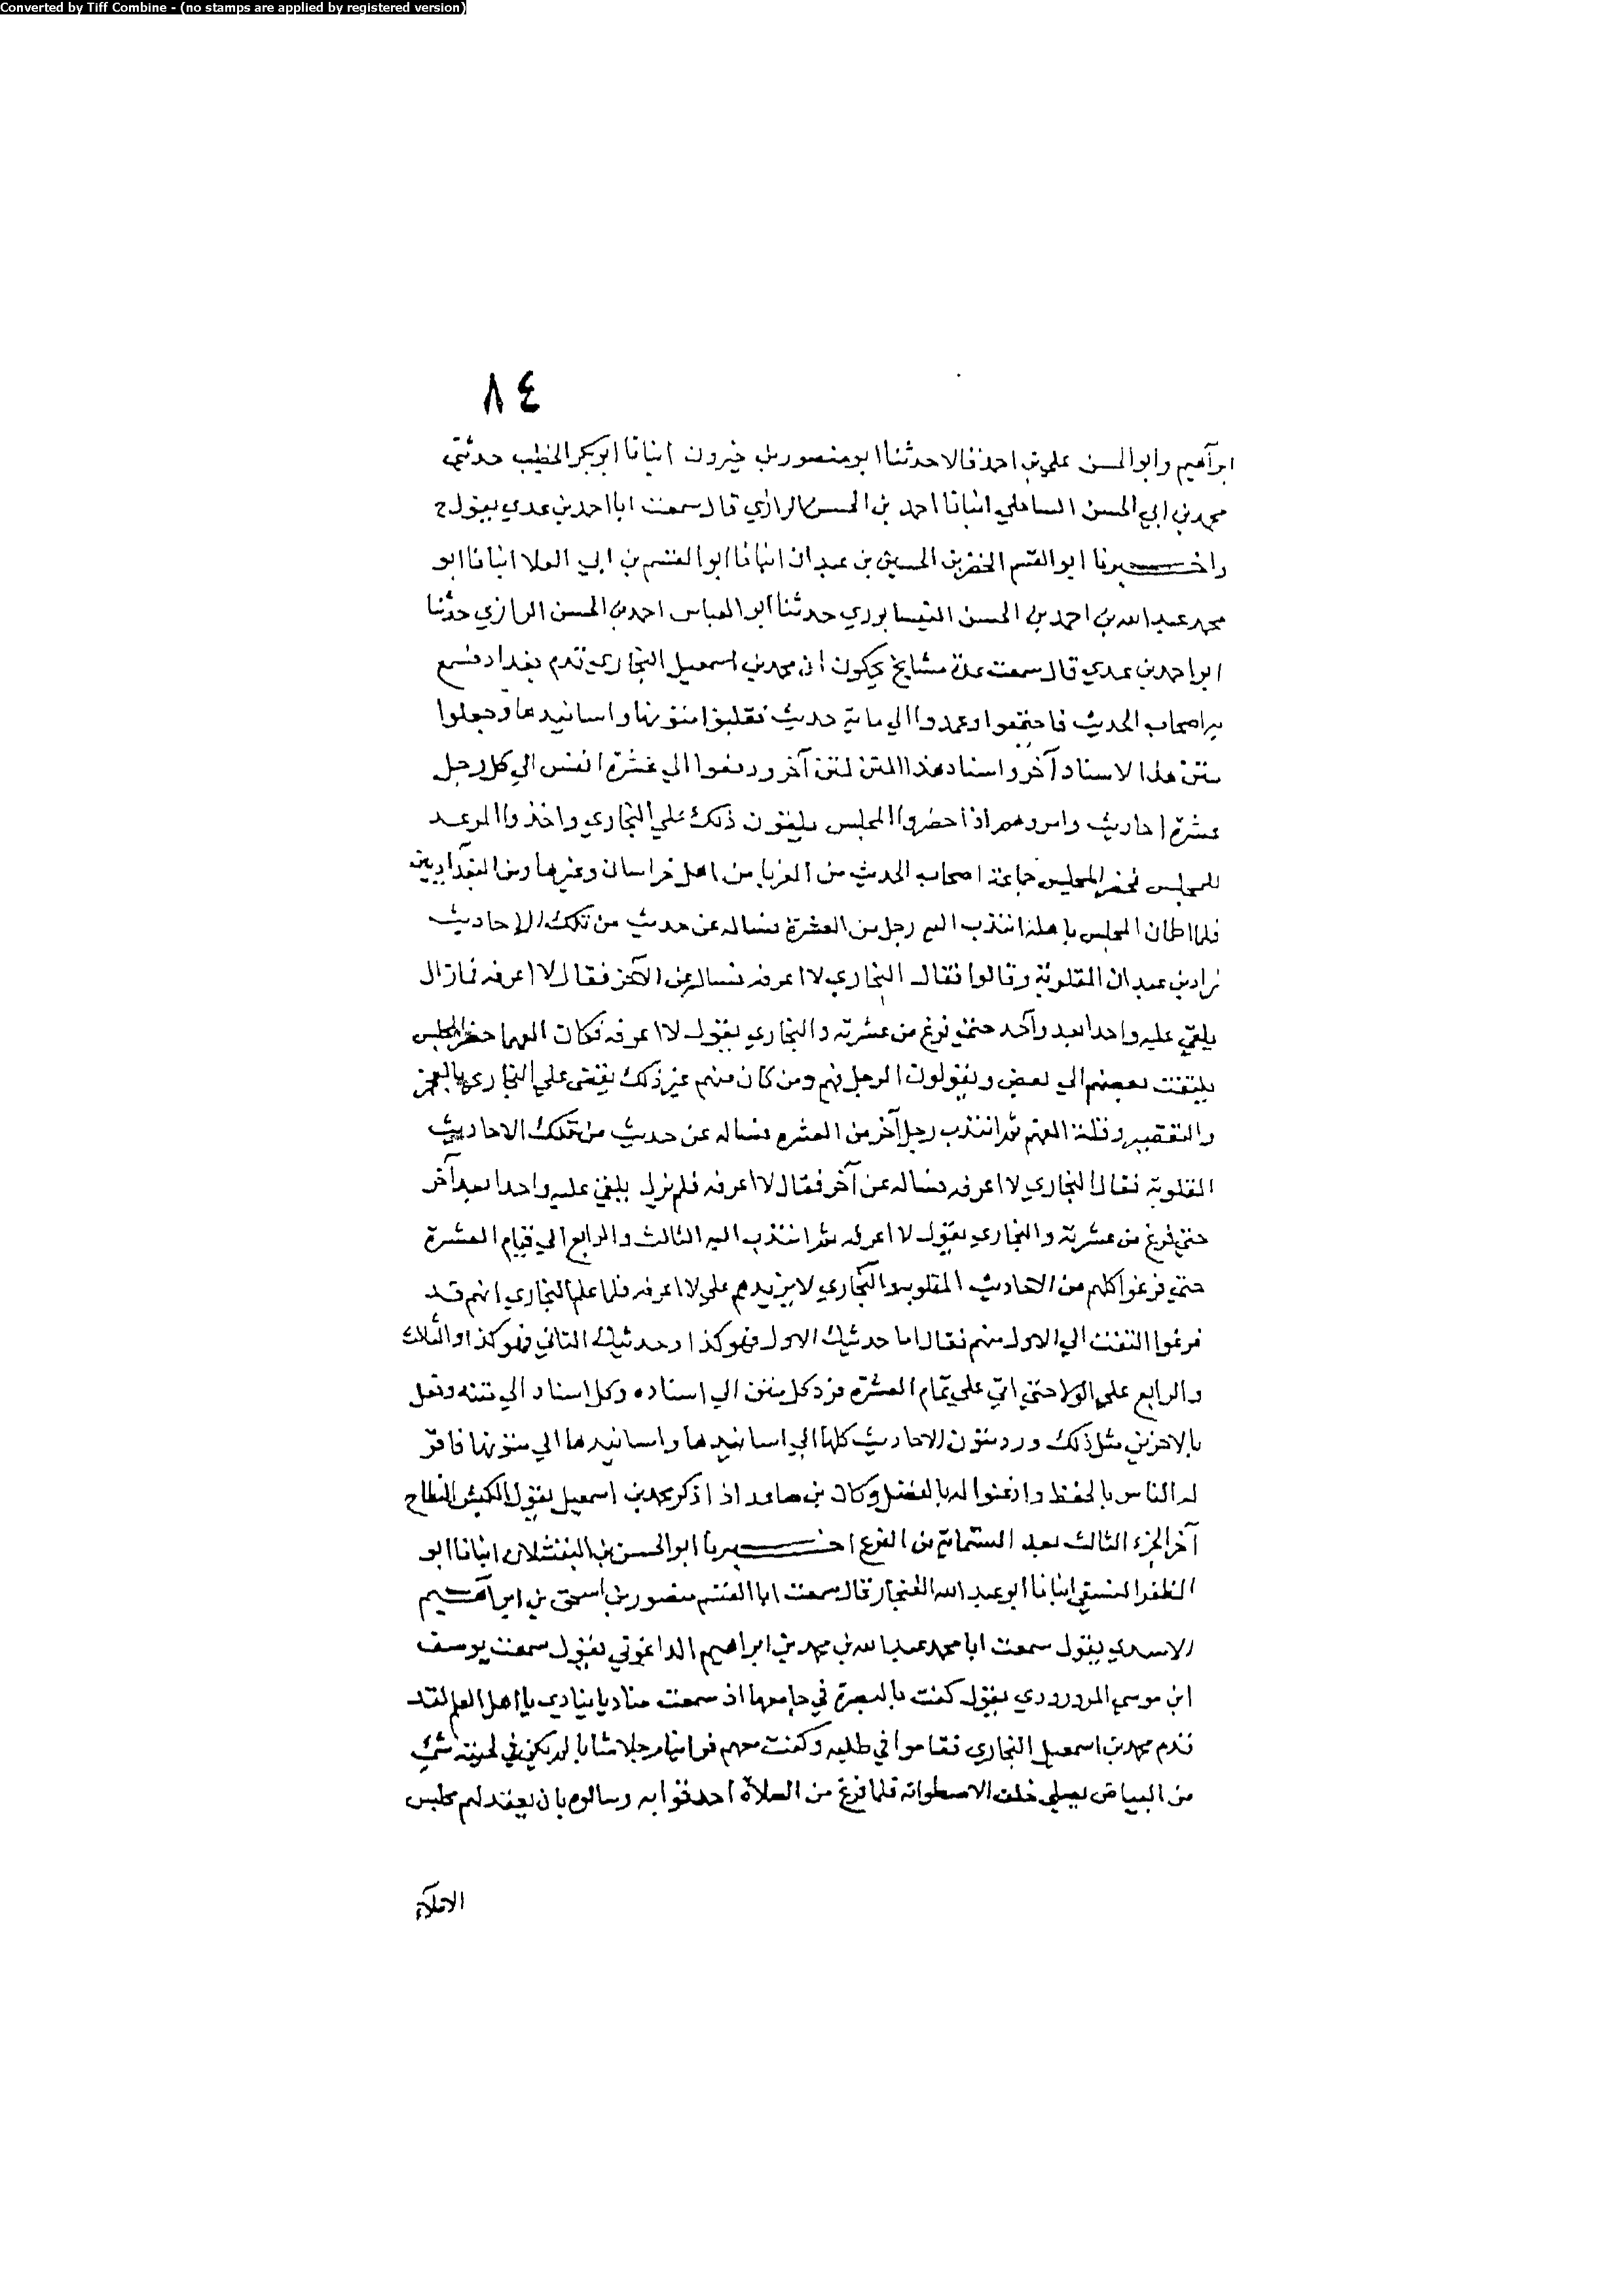 Converted by Tiff Combine - (no stamps are applied by registered version)
٨٤
ابرآهيم وابو الحسن علي بن احمد قالا حدثنا ابو منصور بن خيرون انبانا ابو بكر الخطيب حدثني
محمد بن ابي الحسن الساحلي انبانا احمد بن الحسن الرازي قال سمعت ابا احمد بن عدي يقول ح
واخبرنا ابو القسم الخضر بن الحسين بن عبدان انبانا ابو القسم بن ابي العلا انبانا ابو
محمد عبد الله بن احمد بن الحسن النيسابوري حدثنا ابو العباس احمد بن الحسن الرازي حدثنا
ابو احمد بن عدي قال سمعت عدة مشايخ يحكون ان محمد بن اسمعيل البخاري قدم بغداد فسمع
به اصحاب الحديث فاجتمعوا وعمدوا الي ماية حديث فقلبوا متونها واسانيدها وجعلوا
متن هذا لاسناد آخر واسناد هذا المتن لمتن آخر ودفعوا الي عشرة انفس الي كل رجل
عشرة احاديث وامروهم اذا حضروا المجلس يلقون ذلك علي البخاري واخذوا الموعد
للمجلس فحضر المجلس جماعة اصحاب الحديث من الغربا من اهل خراسان وغيرها ومن البغداديين
فلما اطمان المجلس باهله انتدب اليه رجل من العشرة فساله عن حديث من تلك الاحاديث
زاد بن عبدان المقلوبة وقالوا فقال البخاري لا اعرفه فساله عن الآخر فقال لا اعرفه فما زال
يلقي عليه واحدا بعد وآحد حتي فرغ من عشرته والبخاري يقول لا اعرفه فكان الفهما حضر المجلس
يلتفت بعضهم الي بعض ويقولون الرجل فهم ومن كان منهم غير ذلك يقضى علي البخاري بالعجز
والتقصير وقلة الفهم ثم انتدب رجل آخر من العشره فساله عن حديث من تلك الاحاديث
المقلوبة فقال البخاري لا اعرفه فساله عن آخر فقال لا اعرفه فلم يزل يلقي عليه واحدا بعد آخر
حتي فرغ من عشرته والبخاري يقول لا اعرفه ثم انتدب اليه الثالث والرابع الي تمام العشرة
حتي فرغوا كلهم من الاحاديث المقلوبه والبخاري لا يزيدهم علي لا اعرفه فلما علم البخاري انهم قد
فرغوا التفت الي الاول منهم فقال اما حديثك الاول فهو كذا وحديثك الثاني فهو كذا والثالث
والرابع علي الولا حتي اتي علي تمام العشرة فرد كل متن الي اسناده وكل اسناد الي متنه وفعل
بالاخرين مثل ذلك ورد متون الاحاديث كلها الي اسانيدها واسانيدها الي متونها فاقر
له الناس بالحفظ واذعنوا له بالفضل وكان بن صاعد اذا ذكر محمد بن اسمعيل يقول الكبش النطاح
آخر الجزء الثالث بعد الستماية من الفرع اخبرنا ابو الحسن بن البقشلان انبانا ابو
المظفر النسفي انبانا ابو عبد الله الغنجار قال سمعت ابا القسم منصور بن اسحق بن ابراهيم
الاسدي يقول سمعت ابا محمد عبد الله بن محمد بن ابراهيم الداغوني يقول سمعت يوسف
ابن موسي المروروذي يقول كنت بالبصرة في جامعها اذ سمعت مناديا ينادي يا اهل العلم لقد
قدم محمد بن اسمعيل البخاري فقاموا في طلبه وكنت معهم فراينا رجلا شابا لم يكن في لحيته شئ
من البياض يصلي خلف الاسطوانه فلما فرغ من الصلاة احدقوا به وسالوه بان يعقد لهم مجلس
الاملآء